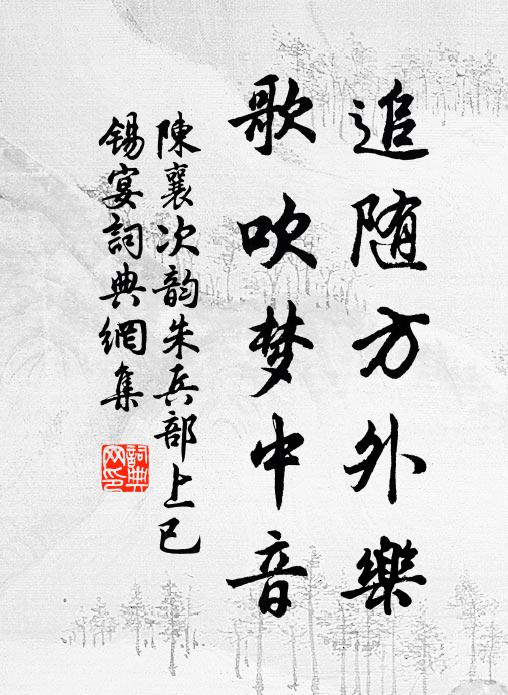 追随方外樂
歌吹梦中音
陳襄次韵朱兵部上巳
锡宴詞典網集
詞典
网印